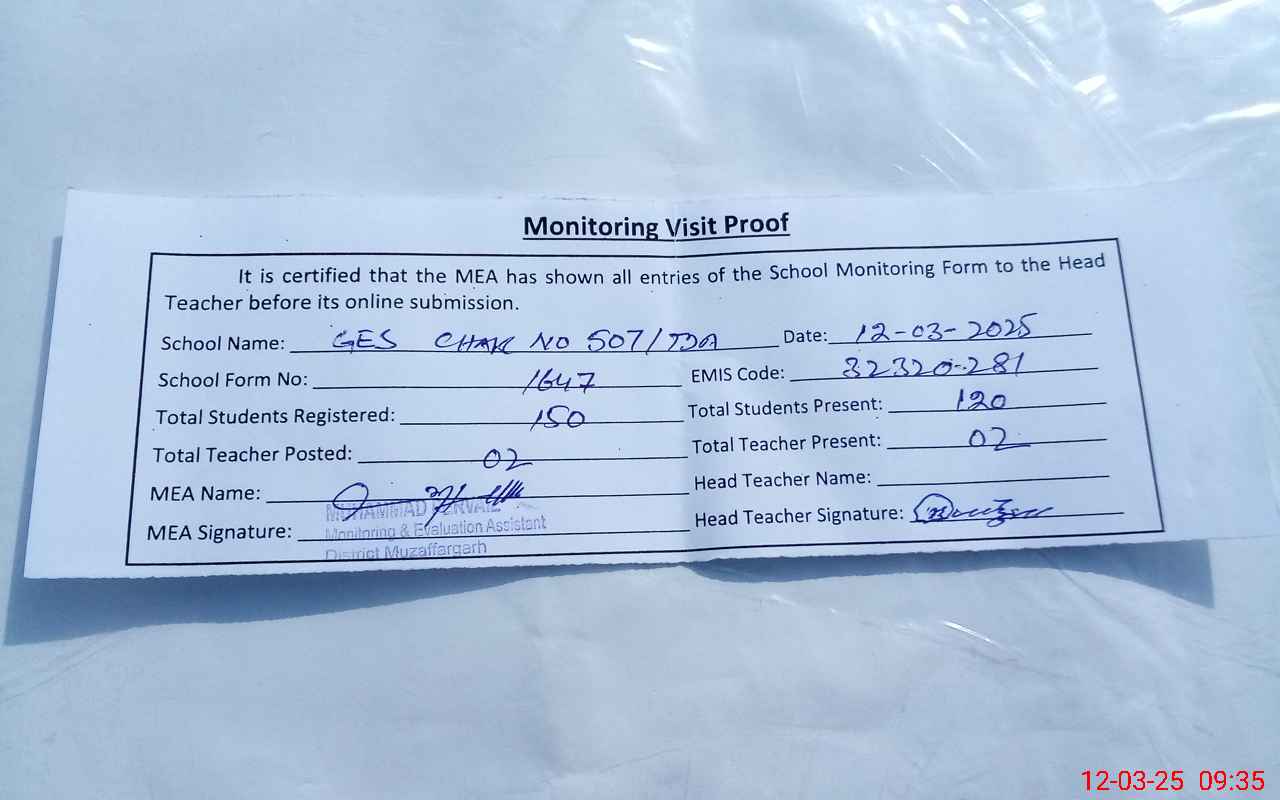 Monitoring Visit Proof
It is certified that the MEA has shown all entries of the School Monitoring Form to the Head
Teacher before its online submission.
School Name: GES CHAK NO 507/TDA Date: 12-03-2025
School Form No: 1647 EMIS Code: 32320281
Total Students Registered: 150 Total Students Present: 120
Total Teacher Posted: 02 Total Teacher Present: 02
MEA Name: Head Teacher Name:
MUHAMMAD PERVAIZ
MEA Signature: Head Teacher Signature:
Monitoring & Evaluation Assistant
District Muzaffargarh
12-03-25 09:35